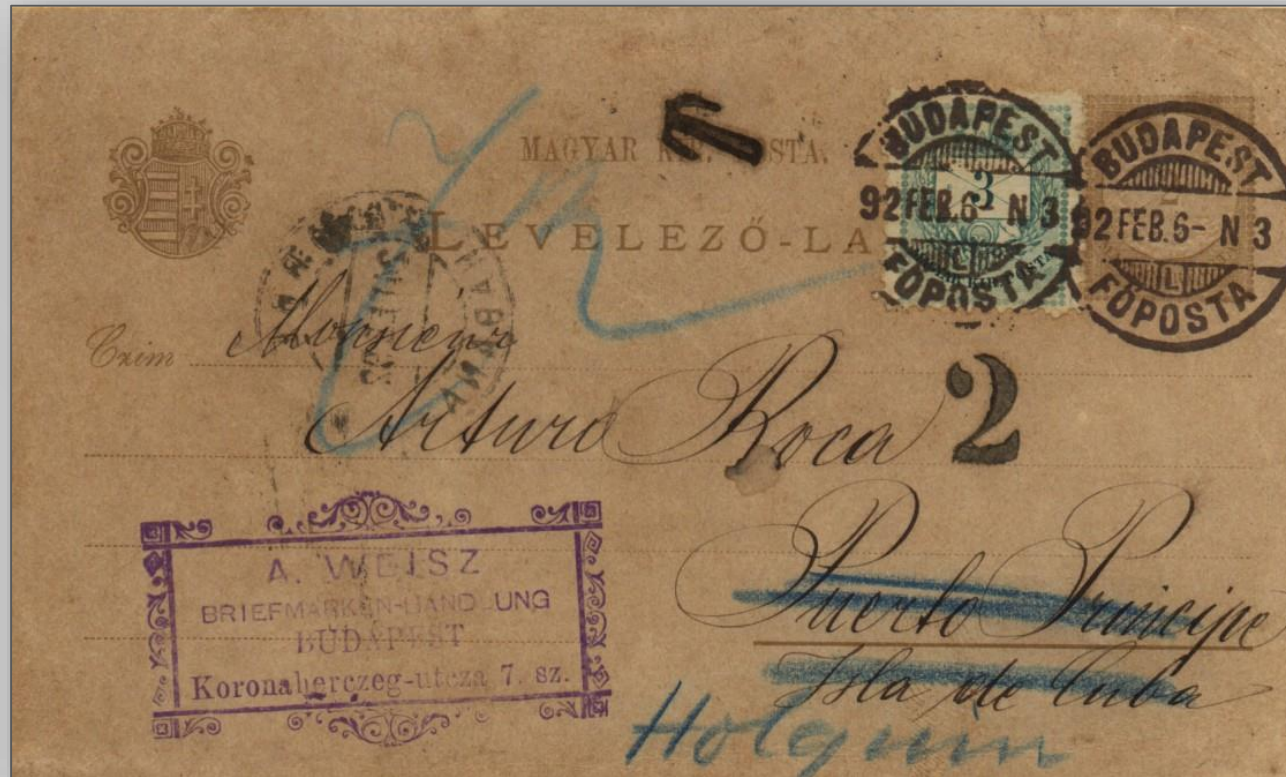 MAGYAR KIR. POSTA.
LEVELEZŐ-LA
BUDAPEST
92 FEB. 6- N 3
L
FŐPOSTA
3
BUDAPEST
92 FEB. 6- N 3
L
FŐPOSTA
HABANA
Czim
Arturo Roca
2
Puerto Principe
Isla de Cuba
Holguin
A. WEISZ
BRIEFMARKEN-HANDLUNG
BUDAPEST
Koronaherczeg-utcza 7. sz.